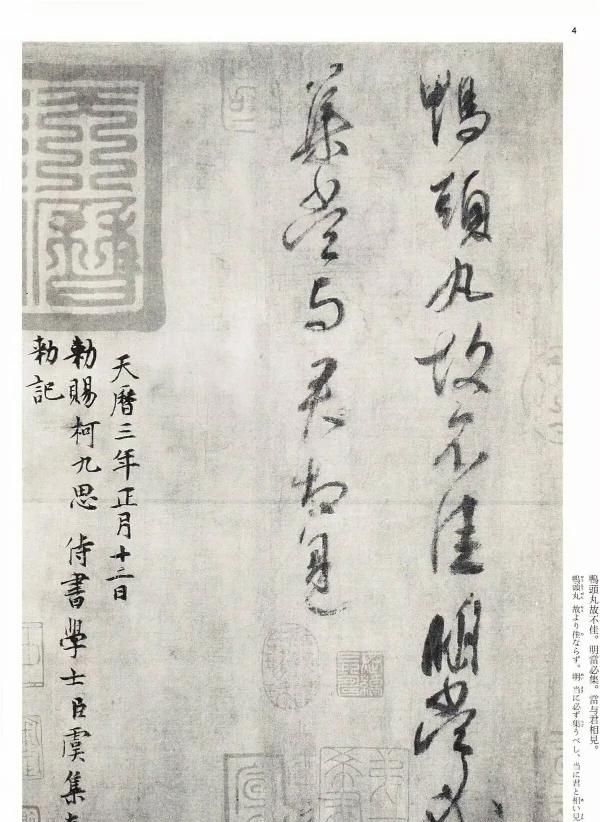 4
鴨頭丸故不佳明當必
集當与君相見
天曆三年正月十二日
勅賜柯九思 侍書學士臣虞集奉
勅記
鴨頭丸故不佳。明當必集。當与君相見。
鴨頭丸 故より佳ならず。明 当に必ず集うべし、当に君と相い見